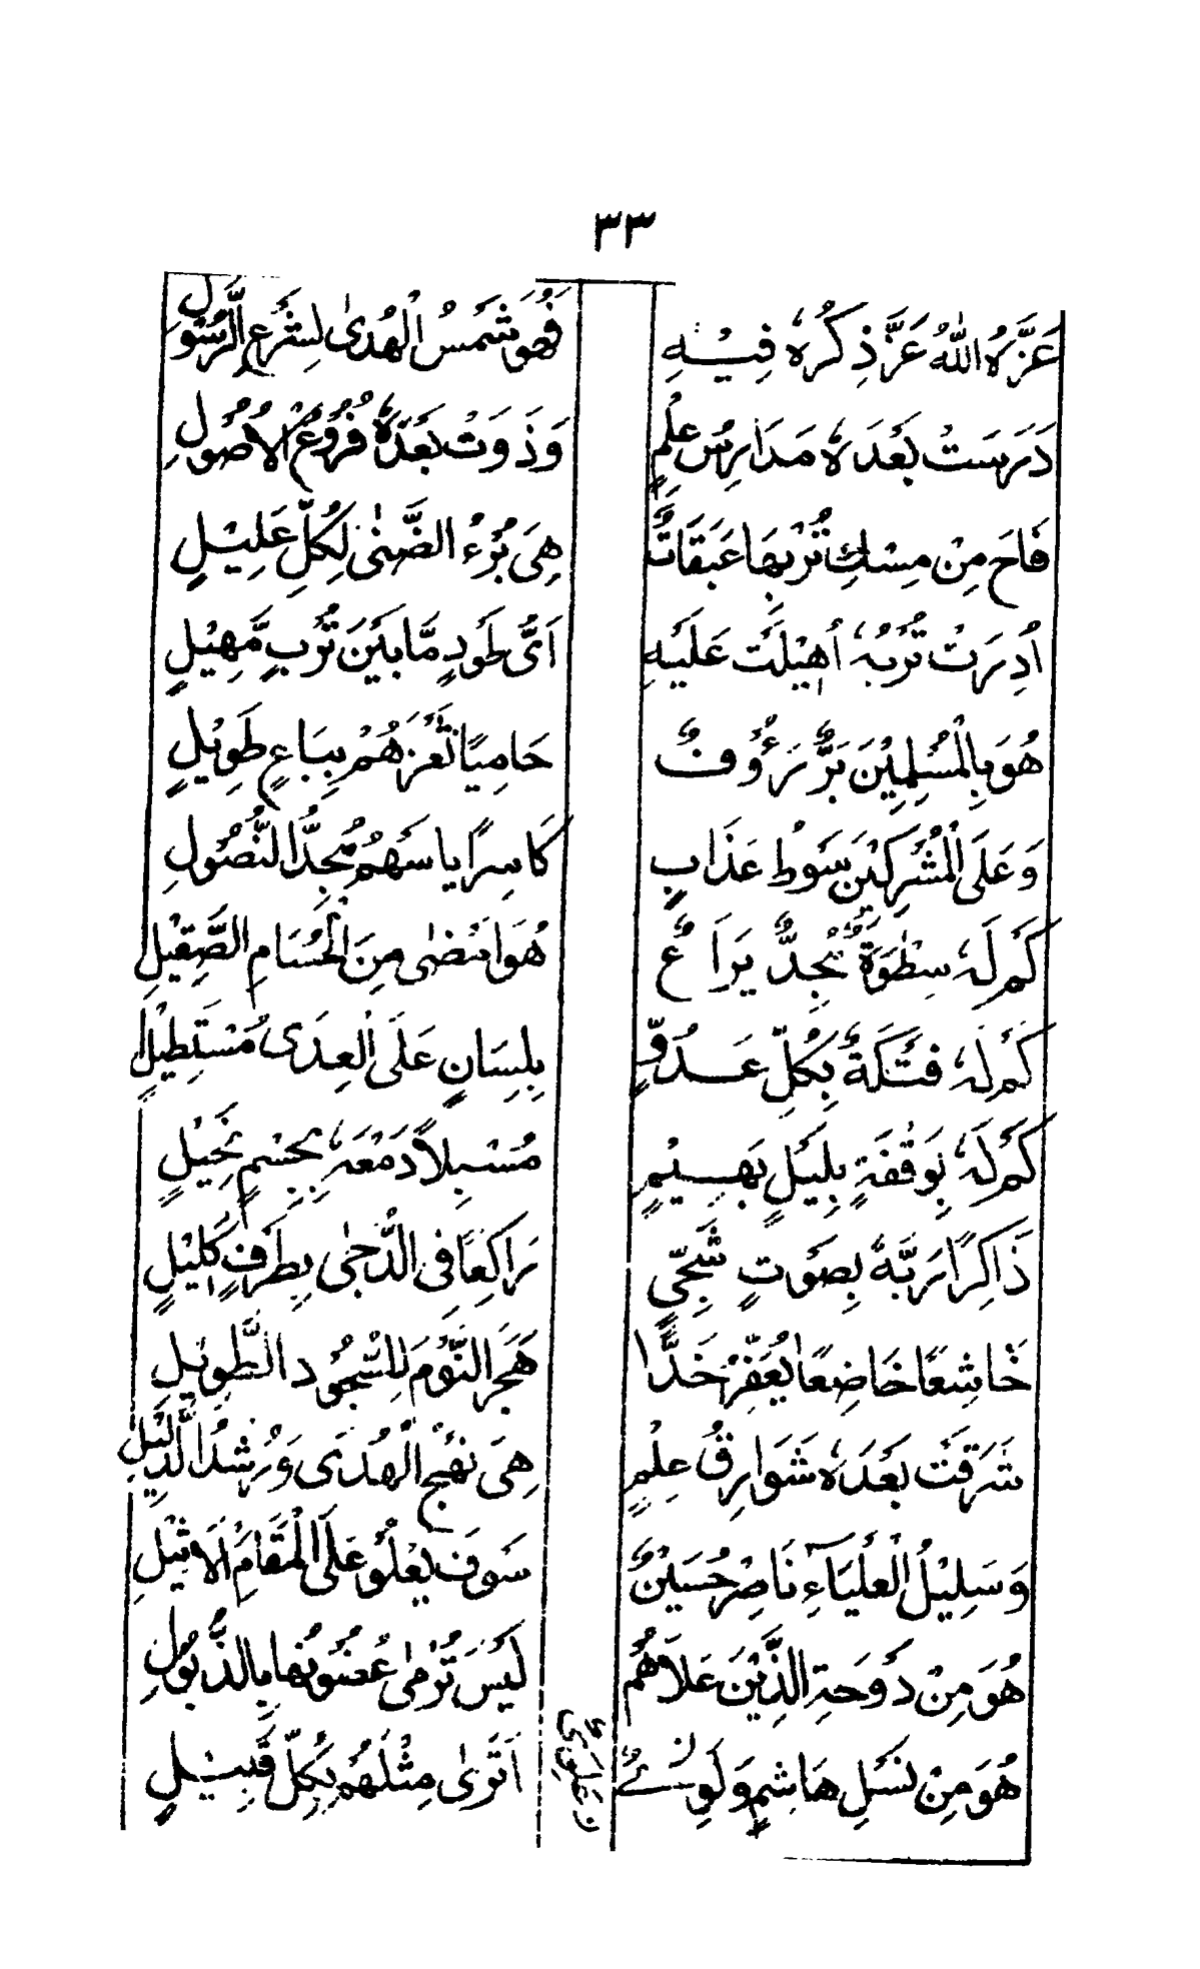 ٣٣
عَزَّهُ اللّٰهُ عَزَّ ذِكْرُهٗ فِيْهِ فَهُوَ شَمْسُ الْهُدىٰ لِشَرْعِ الرَّسُوْلِ
دَرَسَتْ بَعْدَهٗ مَدَارِسُ عِلْمٍ وَذَوَتْ بَعْدَهٗ فُرُوْعُ الْاُصُوْلِ
فَاحَ مِنْ مِسْكِ تُرْبِهَا عَبَقَاتٌ هِىَ بُرْءُ الضَّنٰى لِكُلِّ عَلِيْلٍ
اُدِرَتْ تُرْبُهٗ اُهِيْلَتْ عَلَيْهِ اَىُّ طَوْدٍ مَّا بَيْنَ تُرْبٍ مَّهِيْلٍ
هُوَ بِالْمُسْلِمِيْنَ بَرٌّ رَءُوْفٌ حَامِيًا ثَغْرَهُمْ بِبَاعٍ طَوِيْلٍ
وَعَلَى الْمُشْرِكِيْنَ سَوْطُ عَذَابٍ كَاسِرًا يا سَهْمُ بِحِدِّ النُّصُوْلِ
كَمْ لَهٗ سِطْوَةٌ بِحِدِّ يَرَاعٍ هُوَ امْضٰى مِنَ الْحُسَامِ الصَّقِيْلِ
كَمْ لَهٗ فَتْكَةٌ بِكُلِّ عَدُوٍّ بِلِسَانٍ عَلَى الْعِدَى مُسْتَطِيْلٍ
كَمْ لَهٗ بِوَقْفَةٍ بِلَيْلٍ بَهِيْمٍ مُسْبِلاً دَمْعَهٗ بِجِسْمٍ نَحِيْلٍ
ذَاكِرًا رَبَّهٗ بِصَوْتٍ شَجِيٍّ رَاكِعًا فِى الدُّجىٰ بِطَرْفٍ كَلِيْلٍ
خَاشِعًا خَاضِعًا يُعَفِّرُ خَدًّا هَجَرَ النَّوْمَ لِلسُّجُوْدِ الطَّوِيْلِ
شَرَقَتْ بَعْدَهٗ شَوَارِقُ عِلْمٍ هِىَ نَهْجُ الْهُدَى وَرُشْدُ الدَّلِيْلِ
وَسَلِيْلُ الْعَلْيَآءِ نَاصِرُ حُسَيْنٌ سَوْفَ يَعْلُوْ عَلَى الْمَقَامِ الْاَثِيْلِ
هُوَ مِنْ دَوْحَةِ الَّذِيْنَ عَلَاهُمْ لَيْسَ تُرْمٰى غُصُوْنُهَا بِالذُّبُوْلِ
هُوَ مِنْ نَسْلِ هَاشِمٍ وَ لَوِىٍّ اَتَرىٰ مِثْلَهُمْ بِكُلِّ قَبِيْلٍ